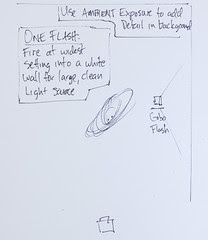 Use AMBIENT Exposure to add
Detail in background
ONE FLASH.
Fire at widest
setting into a white
wall for large, clean
light source
Flash